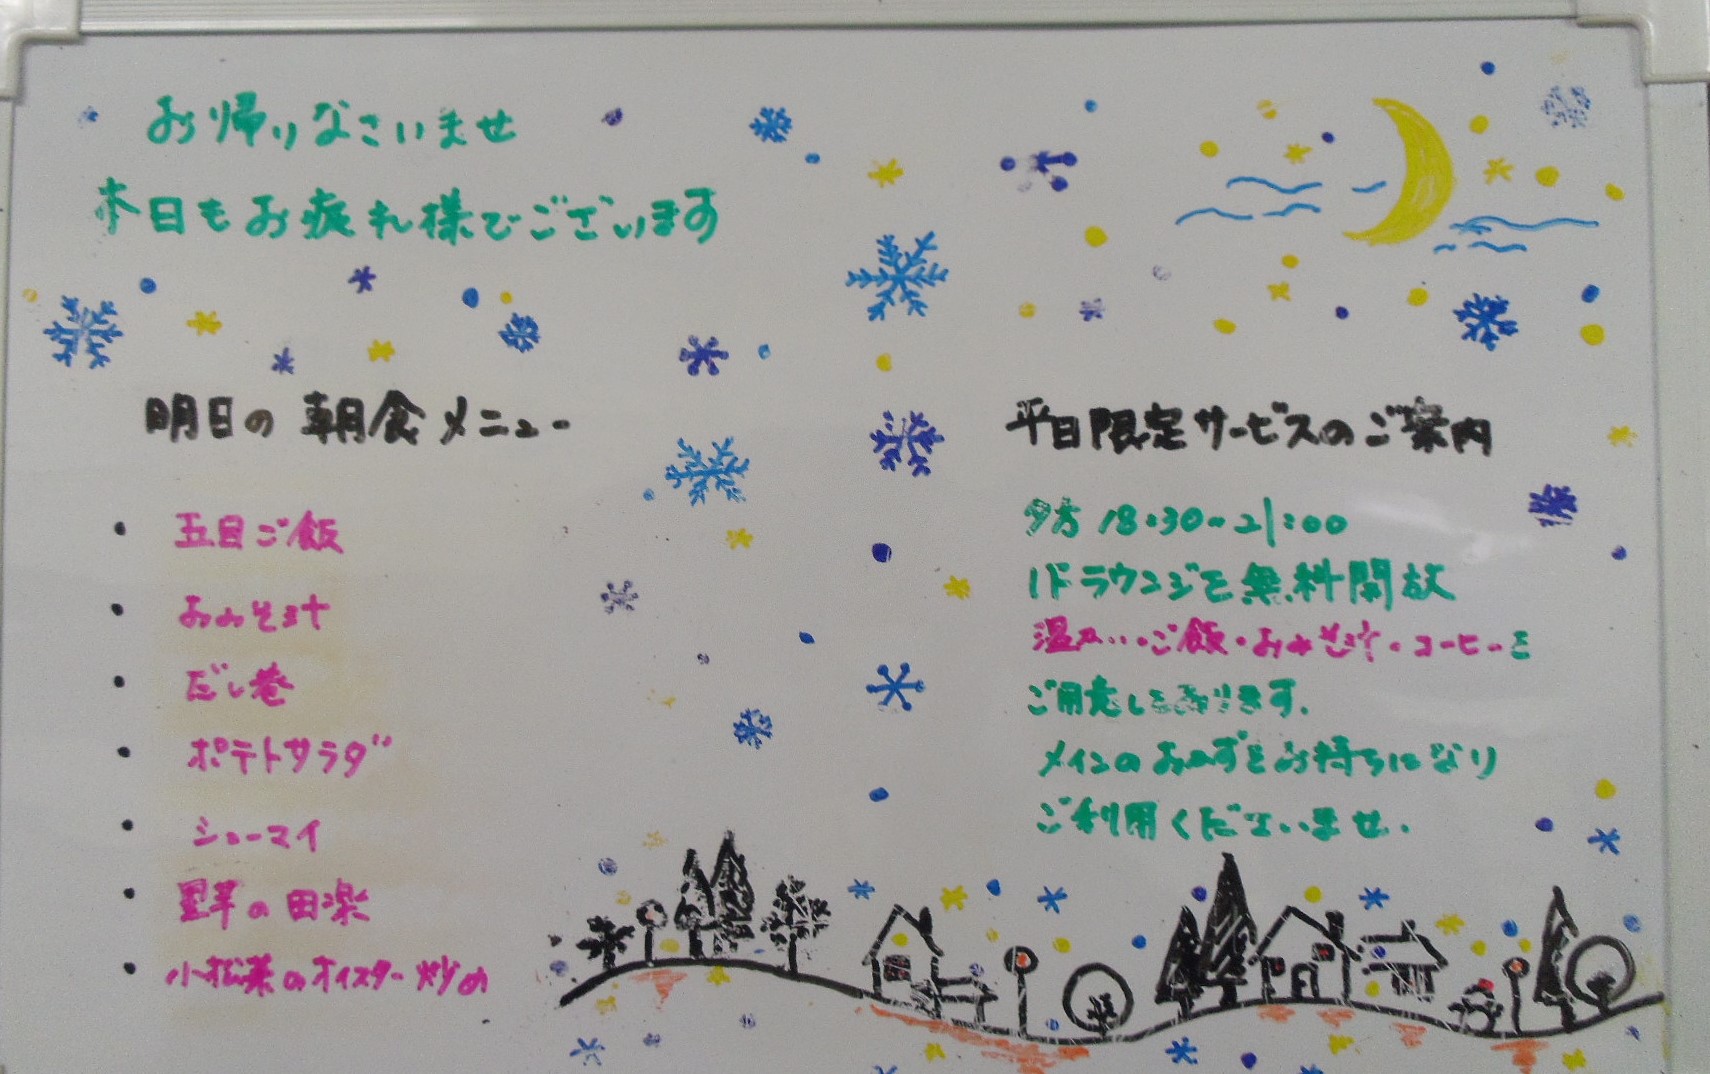 お帰りなさいませ
本日もお疲れ様でございます
明日の朝食メニュー
・五目ご飯
・おみそ汁
・だし巻
・ポテトサラダ
・シューマイ
・里芋の田楽
・小松菜のオイスター炒め
平日限定サービスのご案内
夕方 18:30~21:00
1Fラウンジを無料開放
ご飯・おみそ汁・コーヒーを
ご用意しております。
メインのおかずをお持ちになり
ご利用くださいませ.